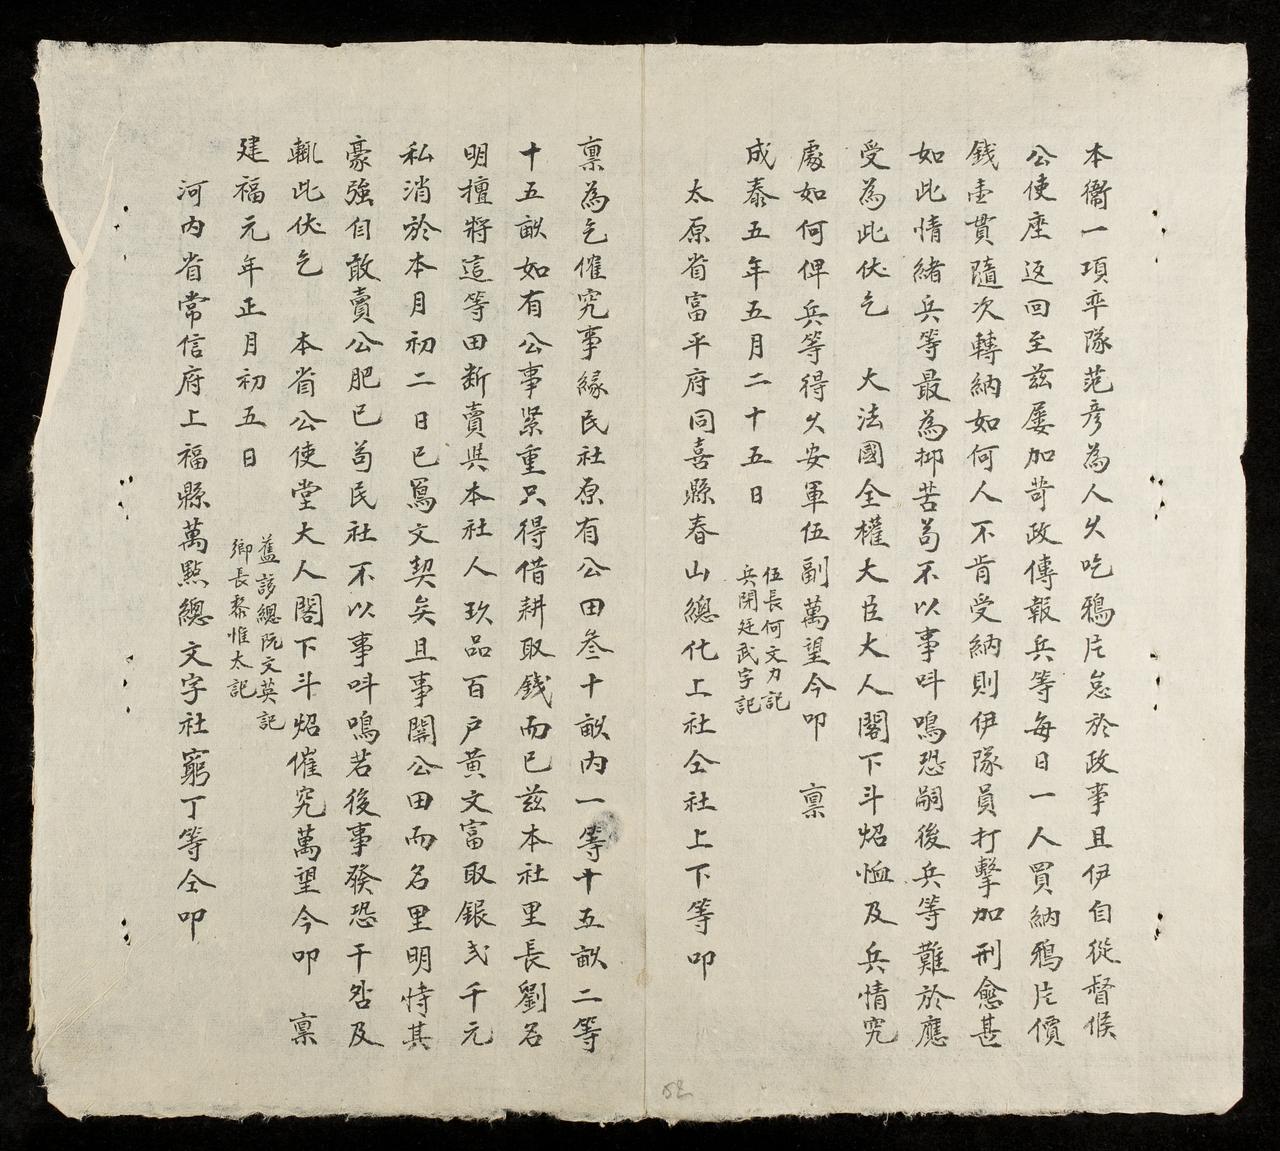 本衞一項卒隊范彦為人久吃鴉片怠於政事且伊自從督候
公使座返回至茲屡加苛政傳報兵等每日一人買納鴉片價
錢壹貫隨次轉納如何人不肯受納則伊隊員打擊加刑愈甚
如此情緒兵等最為抑苦苟不以事呌鳴恐嗣後兵等難於應
受為此伏乞 大法國全權大臣大人閣下斗炤恤及兵情究
處如何俾兵等得久安軍伍副萬望今叩 稟
成泰五年五月二十五日
伍長何文力記
兵閉廷武字記
太原省富平府同喜縣春山總化上社仝社上下等叩
稟為乞催究事緣民社原有公田叁十畝内一等十五畝二等
十五畝如有公事緊重只得借耕取錢而已茲本社里長劉名
明擅將這等田断賣與本社人玖品百户黄文富取銀弍千元
私消於本月初二日已寫文契矣且事關公田而名里明恃其
豪強自敢賣公肥已苟民社不以事呌鳴若後事發恐干咎及
輒此伏乞 本省公使堂大人閣下斗炤催究萬望今叩 稟
建福元年正月初五日
舊該總阮文英記
鄉長黎惟太記
河内省常信府上福縣萬點總文字社窮丁等仝叩
52